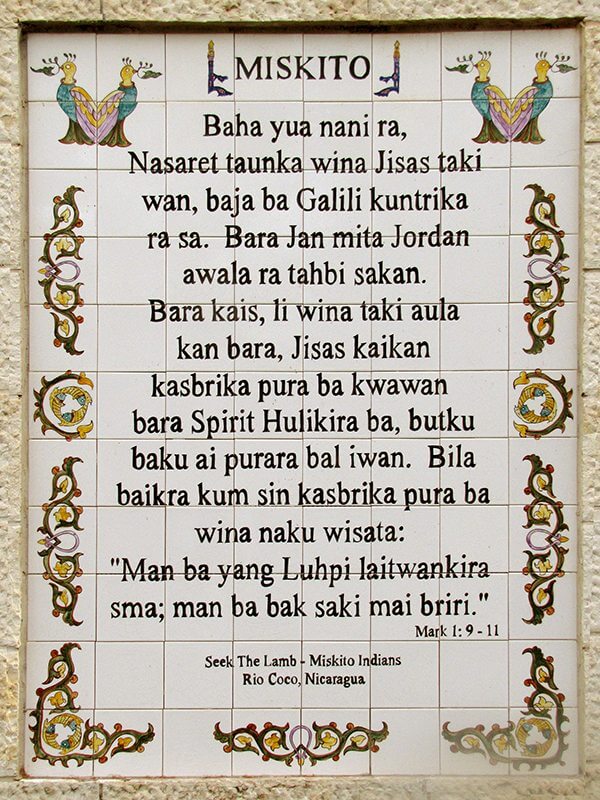 MISKITO
Baha yua nani ra,
Nasaret taunka wina Jisas taki
wan, baja ba Galili kuntrika
ra sa. Bara Jan mita Jordan
awala ra tahbi sakan.
Bara kais, li wina taki aula
kan bara, Jisas kaikan
kasbrika pura ba kwawan
bara Spirit Hulikira ba, butku
baku ai purara bal iwan. Bila
baikra kum sin kasbrika pura ba
wina naku wisata:
"Man ba yang Luhpi laitwankira
sma; man ba bak saki mai briri."
Mark 1: 9 - 11
Seek The Lamb - Miskito Indians
Rio Coco, Nicaragua